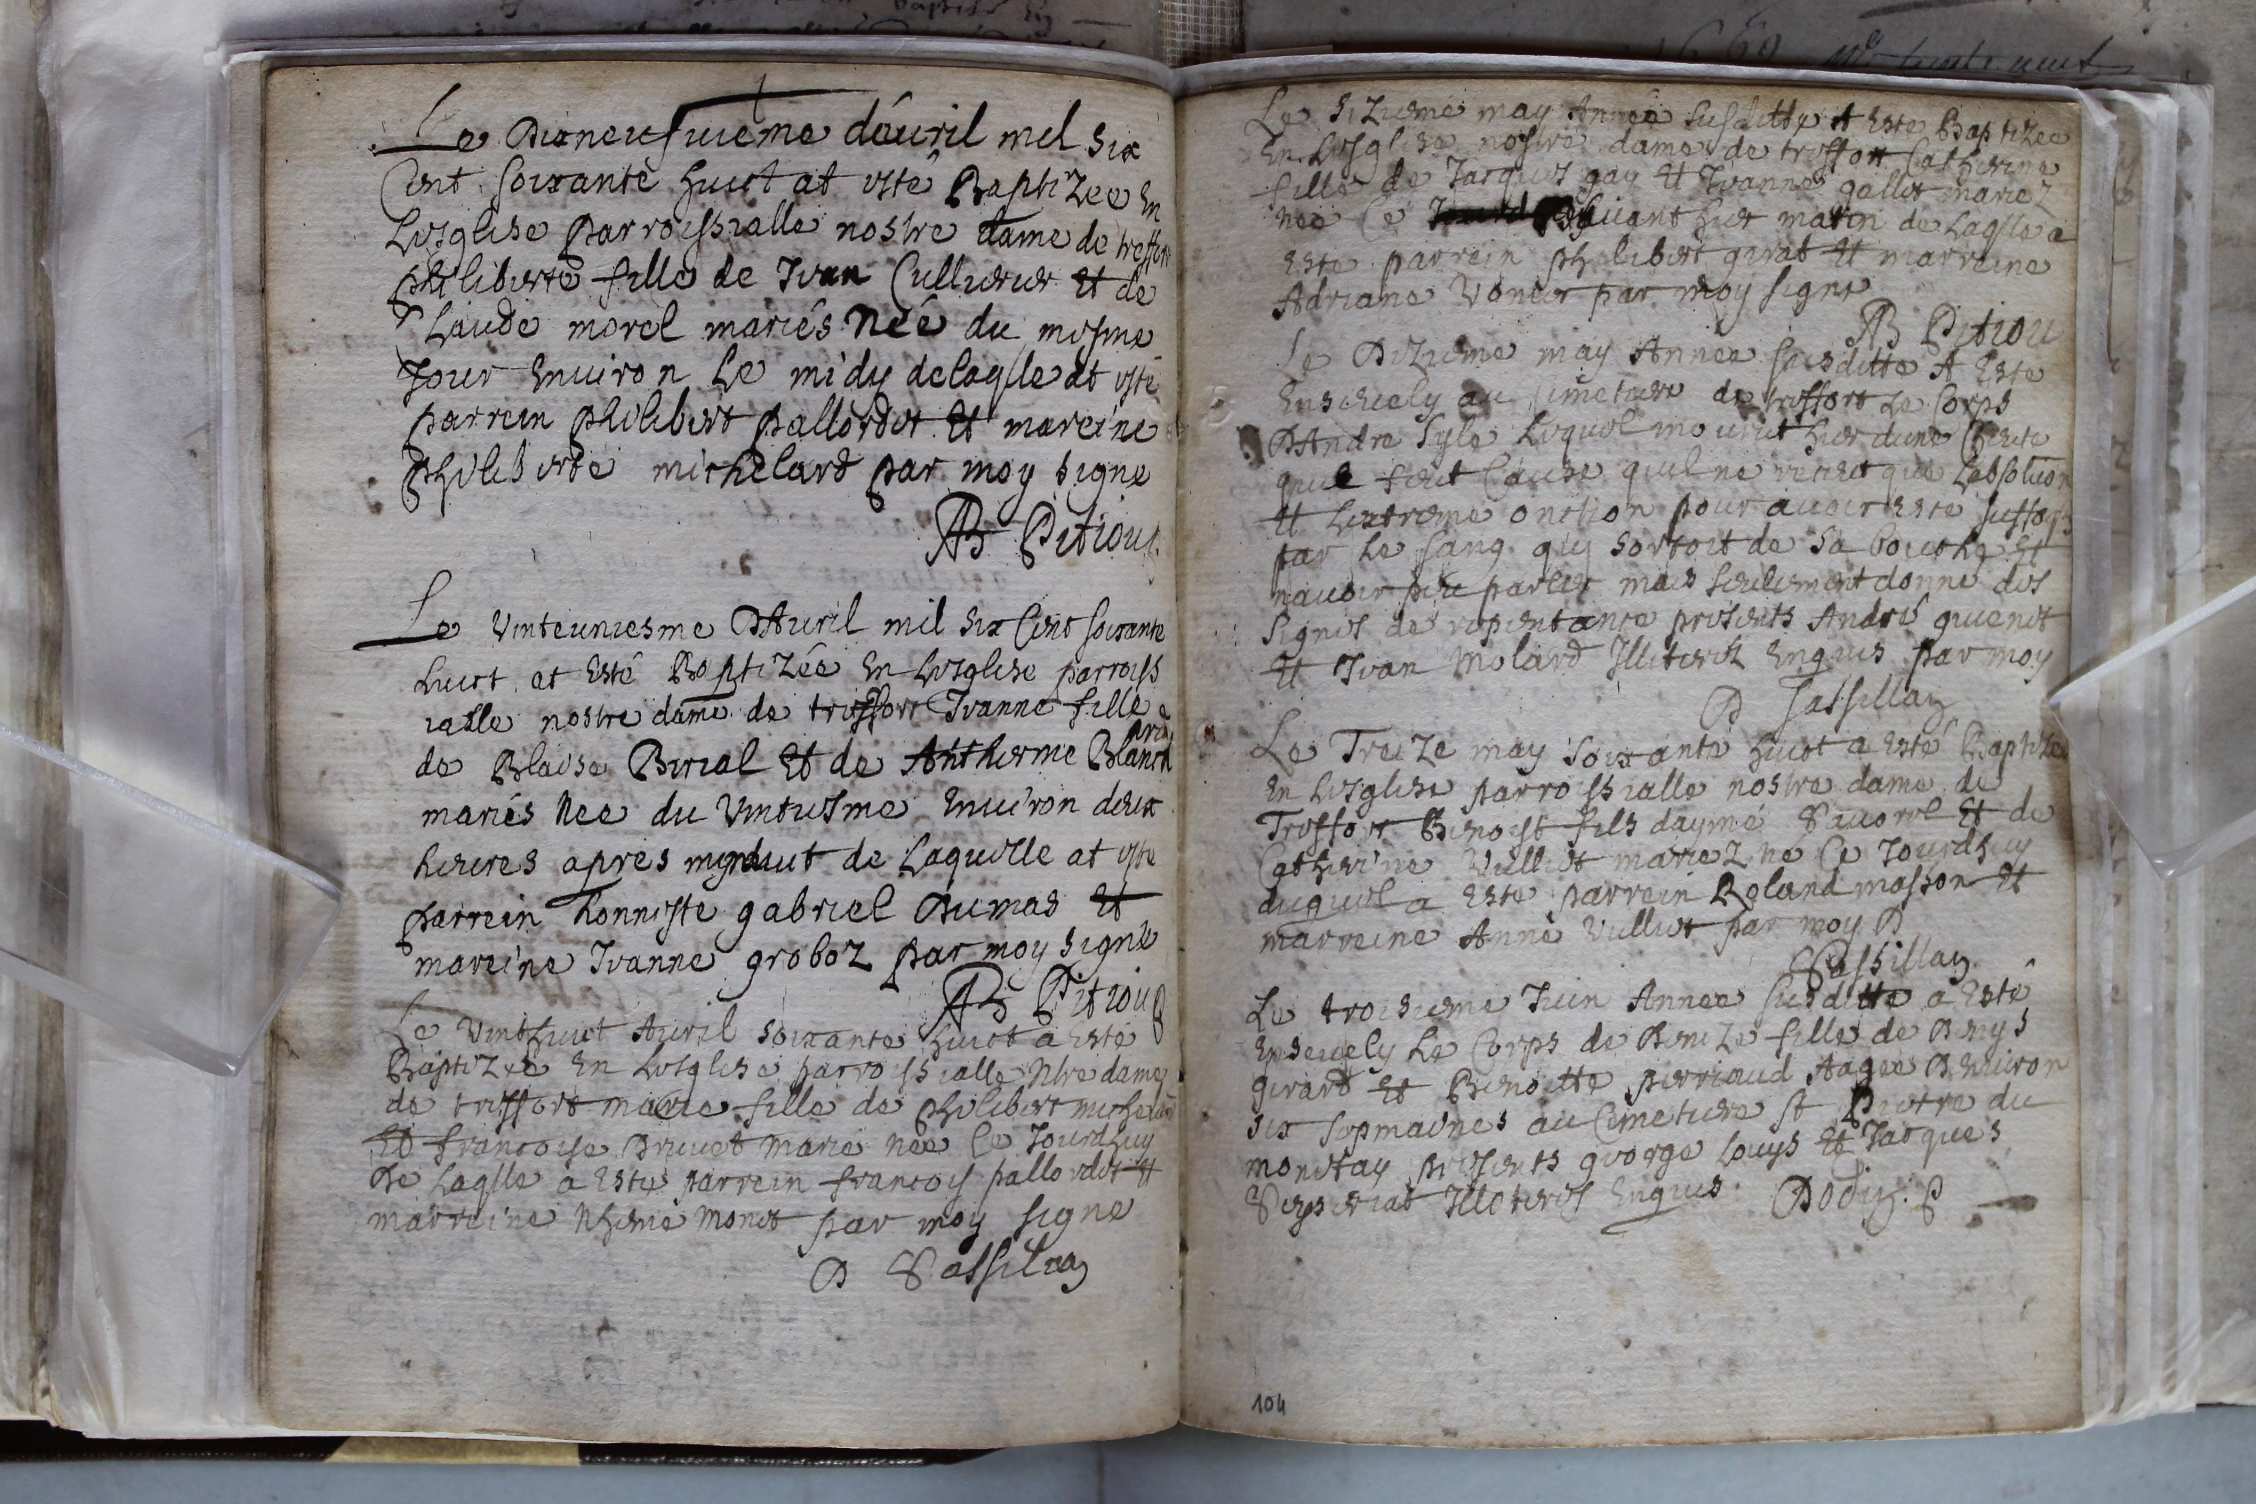 Le Dixneufuieme dauril mil six
Cent soixante huict at esté Baptizee En
Lesglise parroissialle nostre dame de treffort
philiberte fille de Jean Cullierier Et de
Claude morel mariés Née du mesme
Jour Enuiron Le midy delaqlle at esté
parrein philibert pallordet Et mareine
philiberte michelard par moy signe
AB Petiou
Le vinteuniesme D'Auril mil six Cent soixante
huict at Esté Baptizée En Lesglise parroiss
ialle nostre dame de treffort Jeanne fille
de Blaise Berial Et de Anthesme Blanch
mariés Nee du vintiesme Enuiron deux
heures apres mignuit de Laquelle at este
parrein honneste gabriel Dumas Et
mareine Jeanne groboz par moy signe
AB Petiou
Le vinthuict Auril soixante huict a Este
Baptizée En Lesglise parroissialle Nre dame
de treffort marie fille de philibert michelard
Et francoise Druet marie née Ce Jourdhuy
De Laqlle a Este parrein francois pallordet Et
marreine monet par moy signe
D Sassillay
Le sizieme may Année susditte A Este Baptizee
En Lesglise nostre dame de treffort Catherine
fille de Jacques gay Et Jeanne gallet mariez
nee Ce hier matin de Laqlle a
Este parrein philibert girat Et marreine
Adriane Voneur par moy signe
AB Petiou
Le Dizieme may Annee susditte A Este
Enseuely au cimetiere de treffort Le Corps
D'Andre Syle Lequel mourut hier dune Cheute
que feut Cause quil ne receut que Labsolution
Et Lextreme onction pour auoir Este suffoque
par Le sang qui sortoit de sa bouche Et
nauoir peu parler mais seulement donne des
signes de repentance presents André guenet
Et Jean Molard Illiterez Enquis par moy
D Sassillay
Le Treize may soixante huict a Esté Baptize
En Lesglise parroissialle nostre dame de
Treffort Benoist fils daymé Sauorel Et de
Catherine Vulliet mariez ne Ce Jourdhuy
duquel a Este parrein Roland masson Et
marreine Anne Vulliet par moy D
Sassillay
Le troisieme Juin Annee susditte a Esté
Enseuely Le Corps de Denize fille de Denys
girard Et Benoitte perriaud Aagee D'Enuiron
six sepmaines au Cimetiere st Pierre du
monetay presents george Louys Et Jacques
Illeteres Enquis. Dody. P
104